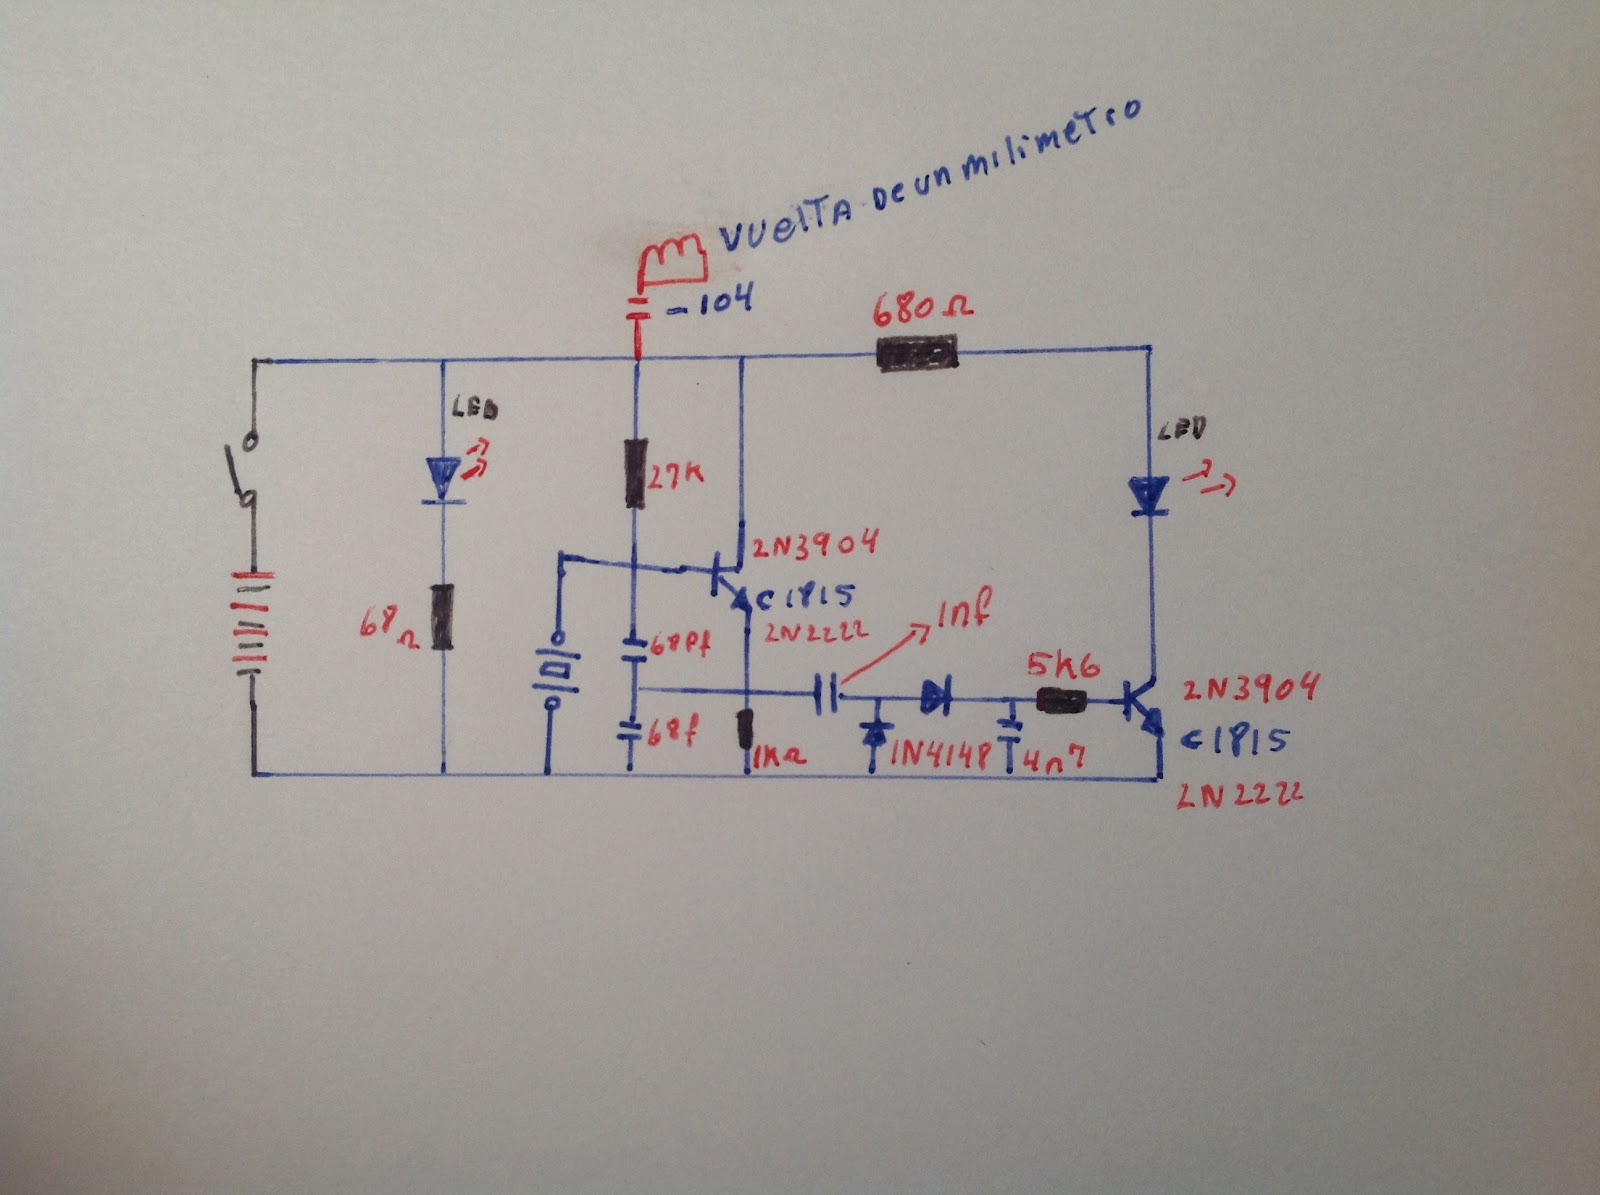 VUelTA De un milimetro
-104
680Ω
LED
LED
27K
2N3904
C1815
2N2222
1nf
68Ω
68Pf
5K6
2N3904
68f
1KΩ
1N4148
4n7
C1815
2N2222